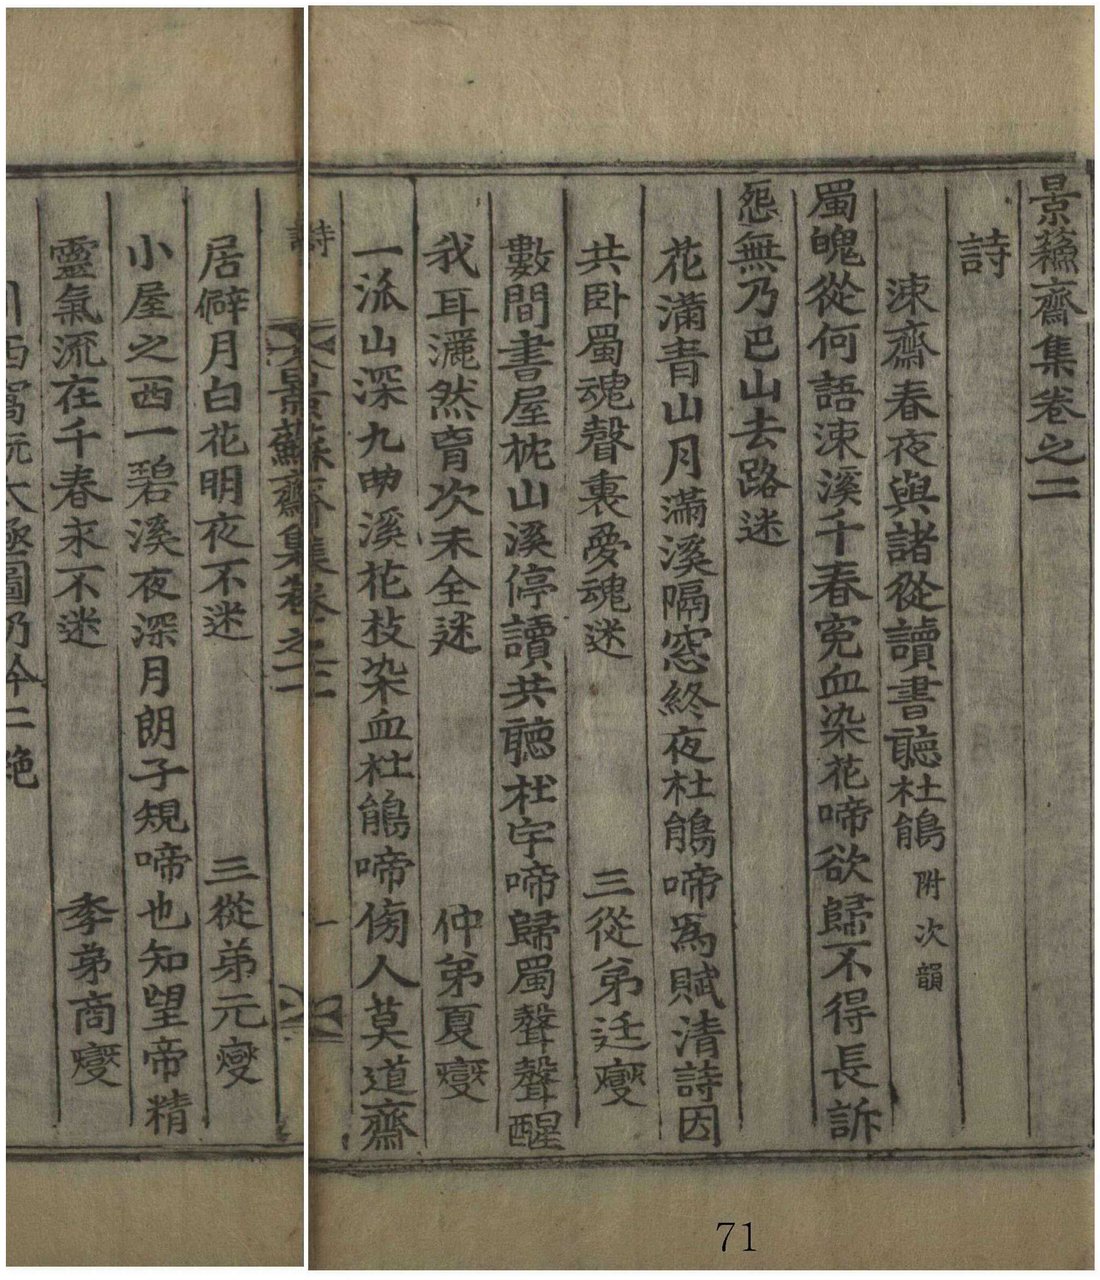 景蘓齋集卷之二
詩
涑齋春夜與諸從讀書聽杜鵑 附次韻
蜀魄從何語涑溪千春寃血染花啼欲歸不得長訴
怨無乃巴山去路迷
花滿青山月滿溪隔窓終夜杜鵑啼爲賦清詩因
共卧蜀魂聲裏愛魂迷
三從弟廷燮
數間書屋枕山溪停讀共聽杜宇啼歸蜀聲聲醒
我耳灑然胷次未全迷
仲弟夏燮
一派山深九曲溪花枝染血杜鵑啼傍人莫道齋
詩
景蘇齋集卷之二
一
居僻月白花明夜不迷
三從弟元燮
小屋之西一碧溪夜深月朗子規啼也知望帝精
靈氣流在千春永不迷
季弟商燮
西窩
太極圖
吟二絶
71